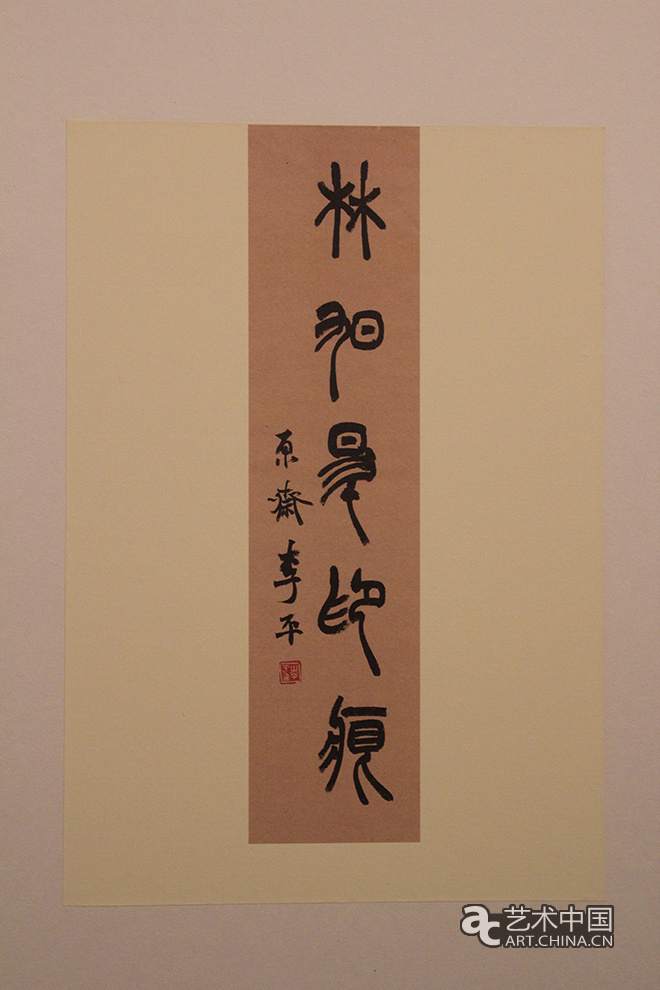 林如是印
原齋李平
艺术中国
ART.CHINA.CN